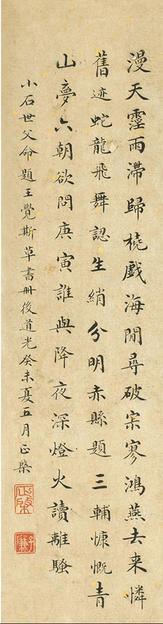 漫天靈雨滯歸橈戲海閒尋破寂寥鴻燕去來憐
舊迹蛇龍飛舞認生綃分明赤縣題三輔慷慨青
山夢六朝欲問庚寅誰與降夜深燈火讀離騷
小石世父命題王覺斯草書冊後道光癸未夏五月正棨